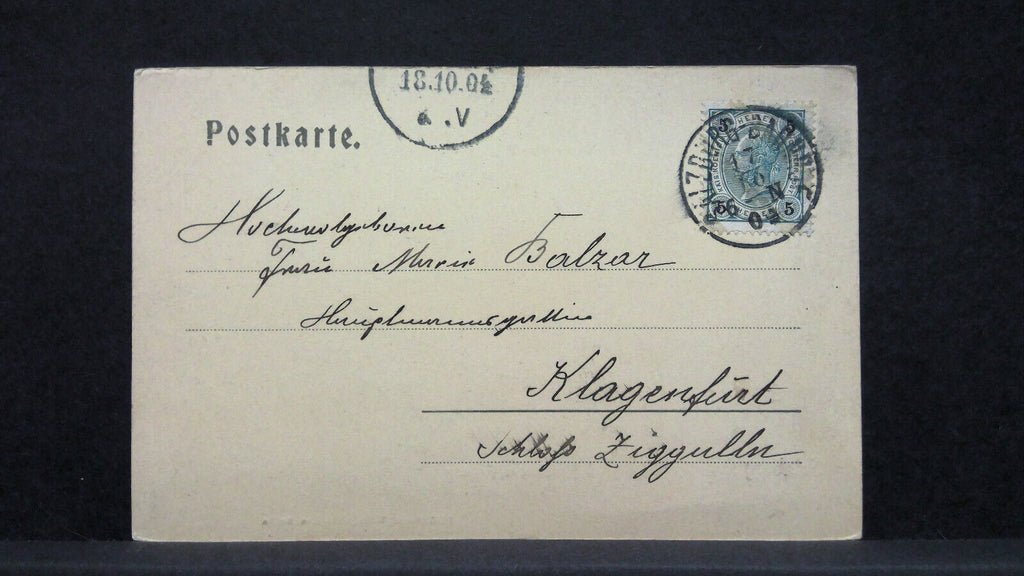 18.10.04
a .V
Postkarte.
5 5
Hochwohlgeboren
Frau Marie Balzar
Hauptmannsgattin
Klagenfurt
Schloß Ziggulln